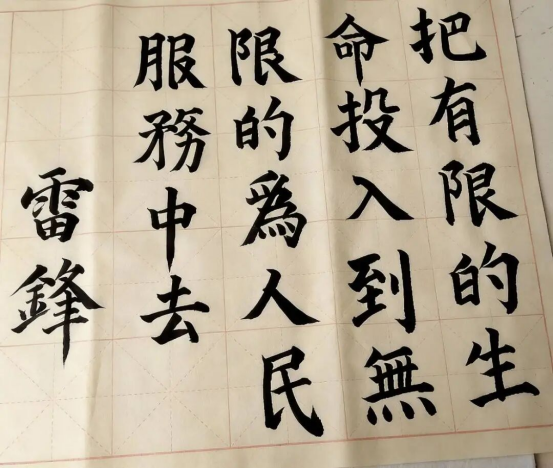 把有限的生
命投入到無
限的為人民
服務中去
雷鋒